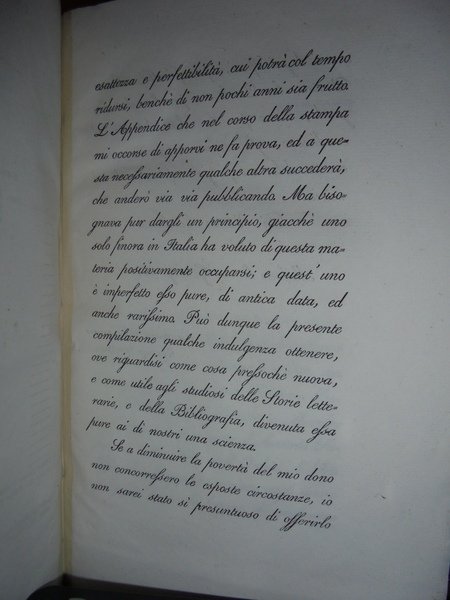 esattezza e perfettibilità, cui potrà col tempo
ridursi, benchè di non pochi anni sia frutto.
L'Appendice che nel corso della stampa
mi occorse di apporvi ne fa prova, ed a que-
sta necessariamente qualche altra succederà,
che anderò via via pubblicando. Ma biso-
gnava pur dargli un principio, giacchè uno
solo finora in Italia ha voluto di questa ma-
teria positivamente occuparsi; e quest' uno
è imperfetto esso pure, di antica data, ed
anche rarissimo. Può dunque la presente
compilazione qualche indulgenza ottenere,
ove riguardisi come cosa pressochè nuova,
e come utile agli studiosi delle Storie lette-
rarie, e della Bibliografia, divenuta essa
pure ai dì nostri una scienza.
Se a diminuire la povertà del mio dono
non concorressero le esposte circostanze, io
non sarei stato sì presuntuoso di offerirlo